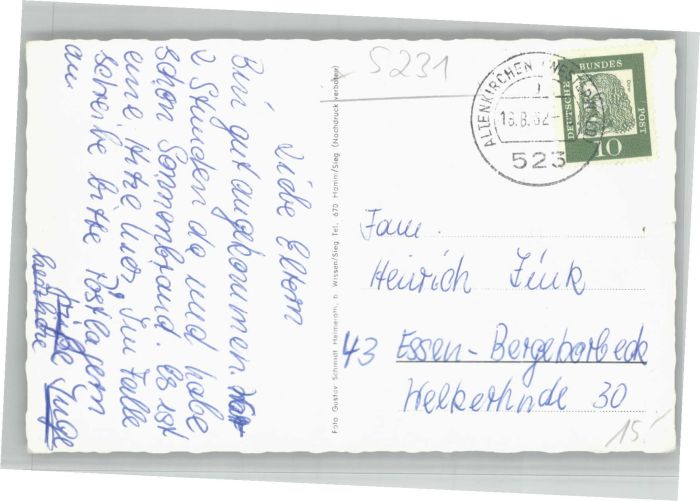 Liebe Eltern
Bin gut angekommen. War
2 Stunden da und habe
schon Sonnenbrand. Es ist
eine Hitze hier. Im Falle
schreibe bitte Postlagern
an
herzliche
Foto Gustav Schmidt Helmeroth, b. Wissen/Sieg Tel. 670 Hamm/Sieg (Nachdruck verboten)
5231
ALTENKIRCHEN (WESTERWALD)
18.8.62
523
DEUTSCHE BUNDESPOST
10
Fam.
Heinrich Fink
43 Essen-Bergeborbeck
15.-